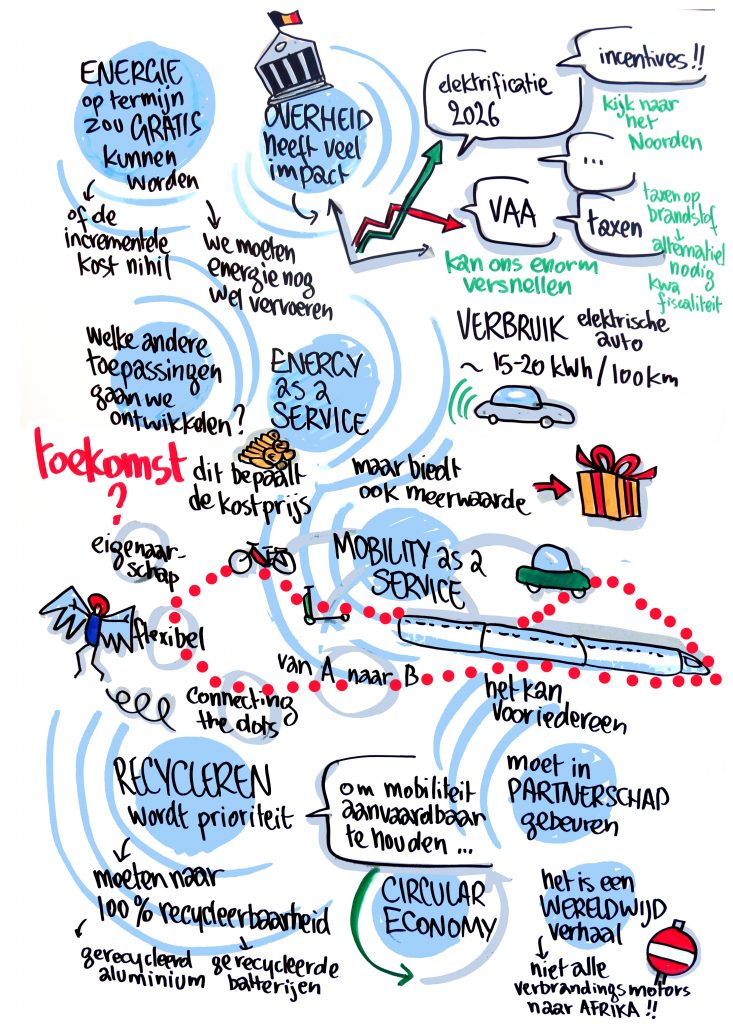 ENERGIE
op termijn
zou GRATIS
kunnen
worden
of de
incrementele
kost nihil
we moeten
energie nog
wel vervoeren
OVERHEID
heeft veel
impact
elektrificatie
2026
incentives!!
kijk naar
het
Noorden
...
VAA
taxen
taxen op
brandstof
alternatief
nodig
kwa
fiscaliteit
kan ons enorm
versnellen
welke andere
toepassingen
gaan we
ontwikkelen?
ENERGY
as a
SERVICE
VERBRUIK elektrische
auto
~ 15-20 kWh/100km
toekomst
?
dit bepaalt
de kostprijs
maar biedt
ook meerwaarde
eigenaar-
schap
flexibel
connecting
the dots
MOBILITY as a
SERVICE
van A naar B
het kan
voor iedereen
RECYCLEREN
wordt prioriteit
om mobiliteit
aanvaardbaar
te houden ...
moet in
PARTNERSCHAP
gebeuren
moeten naar
100% recycleerbaarheid
gerecycleerd
aluminium
gerecycleerde
batterijen
CIRCULAR
ECONOMY
het is een
WERELDWIJD
verhaal
niet alle
verbrandingsmotors
naar AFRIKA !!